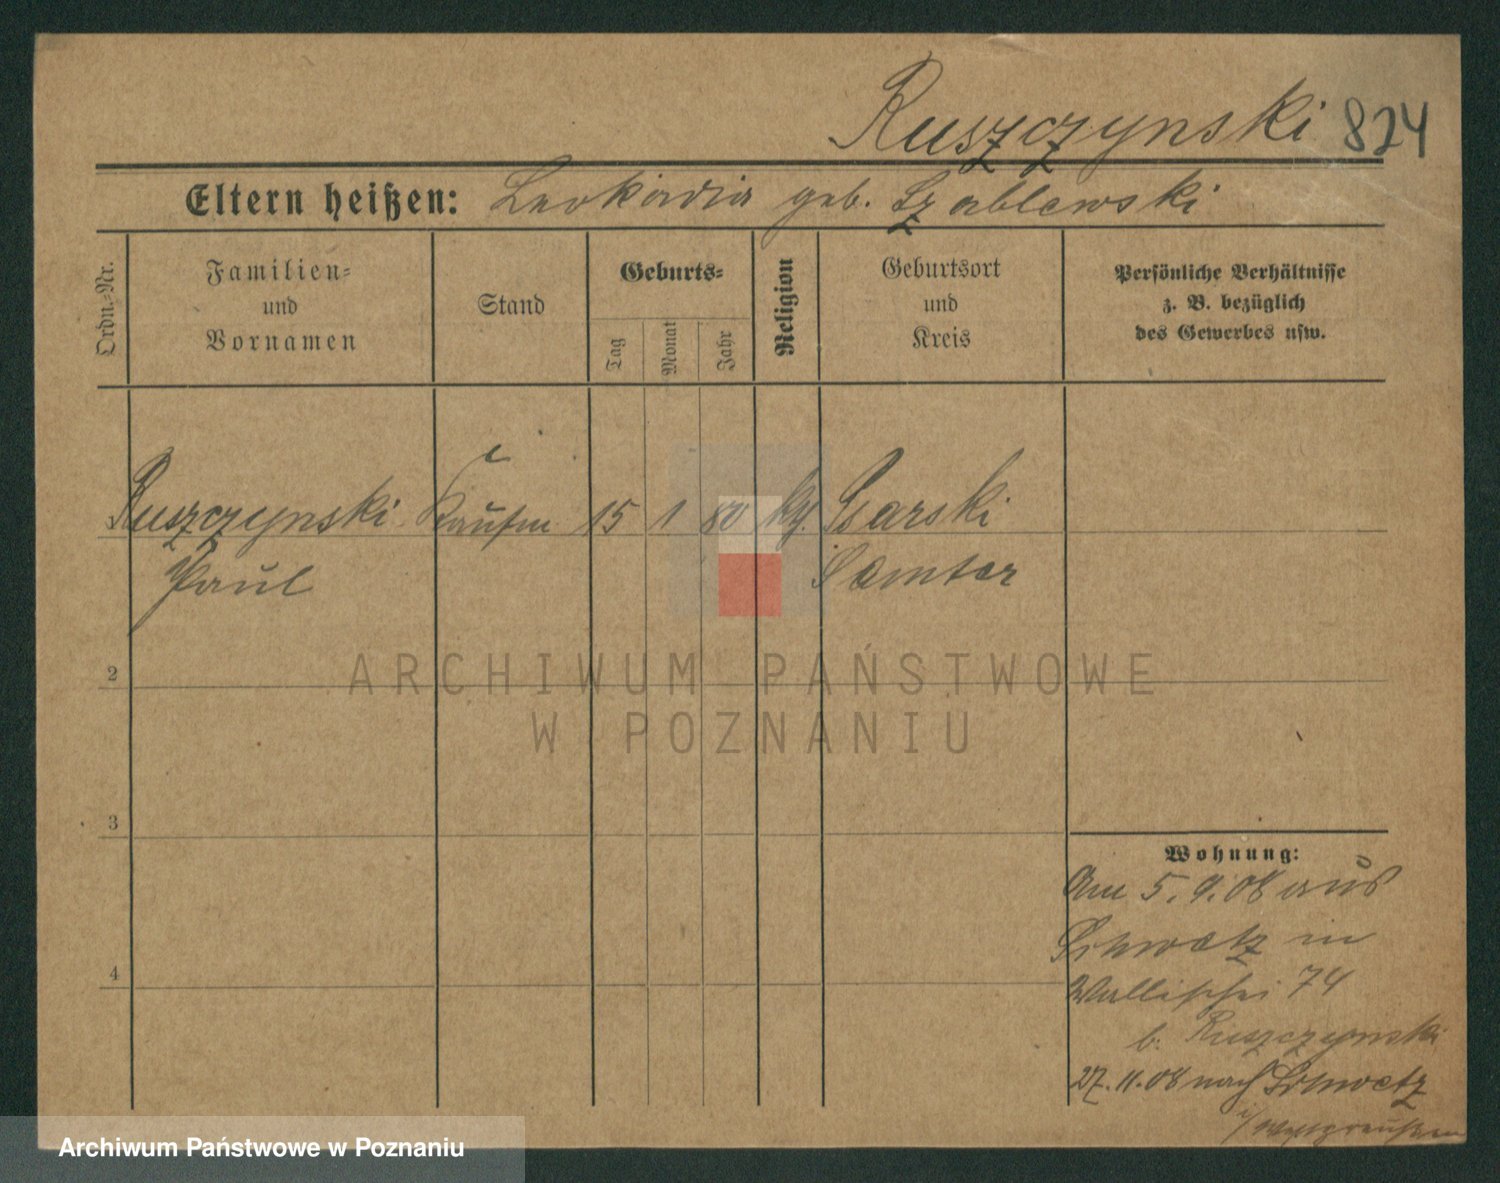 Ruszczynski 824
Eltern heißen: Leokadia geb. Szablewski
Ordn.-Nr.
Familien-
und
Vornamen
Stand
Geburts-
Tag
Monat
Jahr
Religion
Geburtsort
und
Kreis
Persönliche Verhältnisse
z. B. bezüglich
des Gewerbes usw.
Ruszczynski Kaufm 15 1 80 Psarski
Paul Samter
ARCHIWUM PAŃSTWOWE
W POZNANIU
2
3
4
Wohnung:
Am 5.9.08 aus
Schwetz in
Wallischei 74
b. Ruszczynski
27.11.08 nach Schwetz
i/Westpreußen
Archiwum Państwowe w Poznaniu